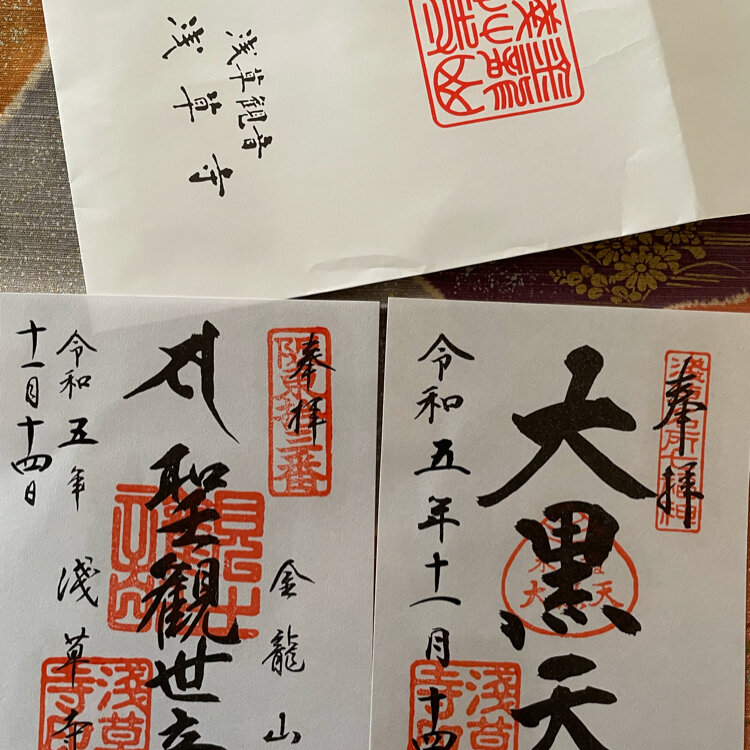 浅草観音
浅草寺
奉拝
坂東拾三番
聖観世音
金龍山
令和五年
十一月十四日
浅草寺
奉拝
浅草名所七福神
大黒天
令和五年十一月十四
浅草寺